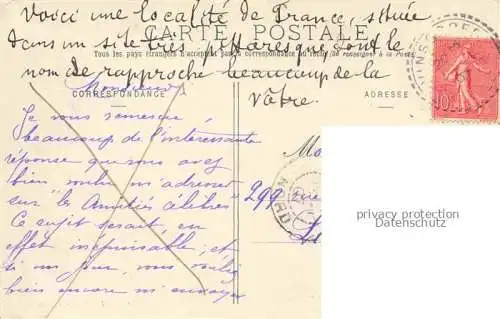 Voici une localité de France, située
dans un site très pittoresque dont le
nom se rapproche beaucoup de la
vôtre.
CARTE POSTALE
Tous les pays étrangers n'acceptent pas la correspondance au recto (se renseigner à la Poste)
CORRESPONDANCE
ADRESSE
Monsieur
Je vous remercie
beaucoup de l'intéressante
réponse que vous avez
bien voulu m'adresser
sur "les Amitiés célèbres"
Ce sujet serait, en
effet inépuisable; et
si un jour, vous voulez
bien encore m'envoyer
299 rue
10
privacy protection
Datenschutz